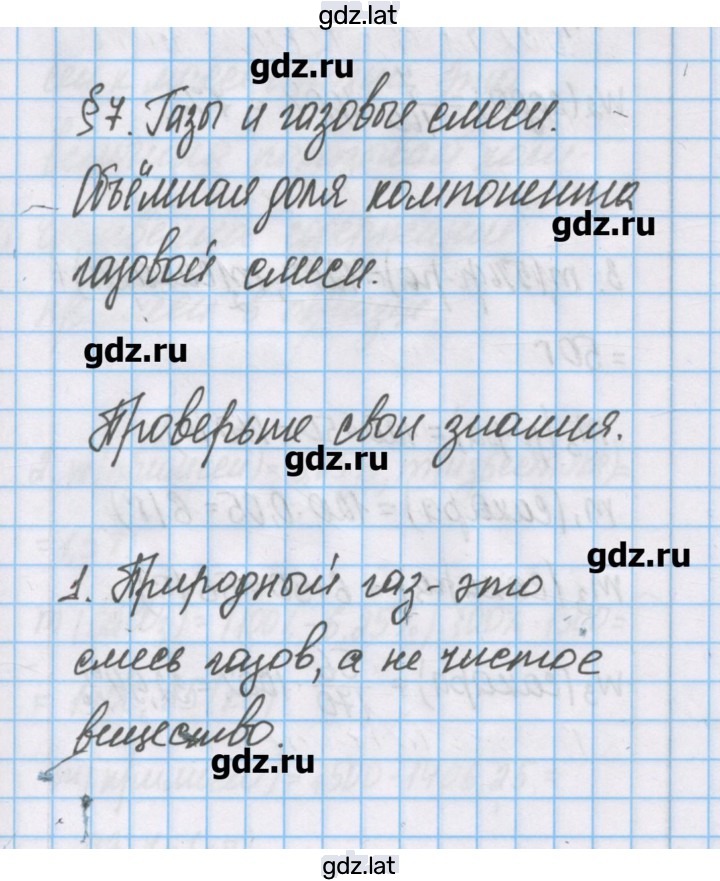 gdz.lat
gdz.ru
§7. Газы и газовые смеси.
Объёмная доля компонента
gdz.ru
газовой смеси.
gdz.ru
Проверьте свои знания.
gdz.ru
gdz.ru
1. Природный газ - это
смесь газов, а не чистое
вещество.
gdz.ru
gdz.lat